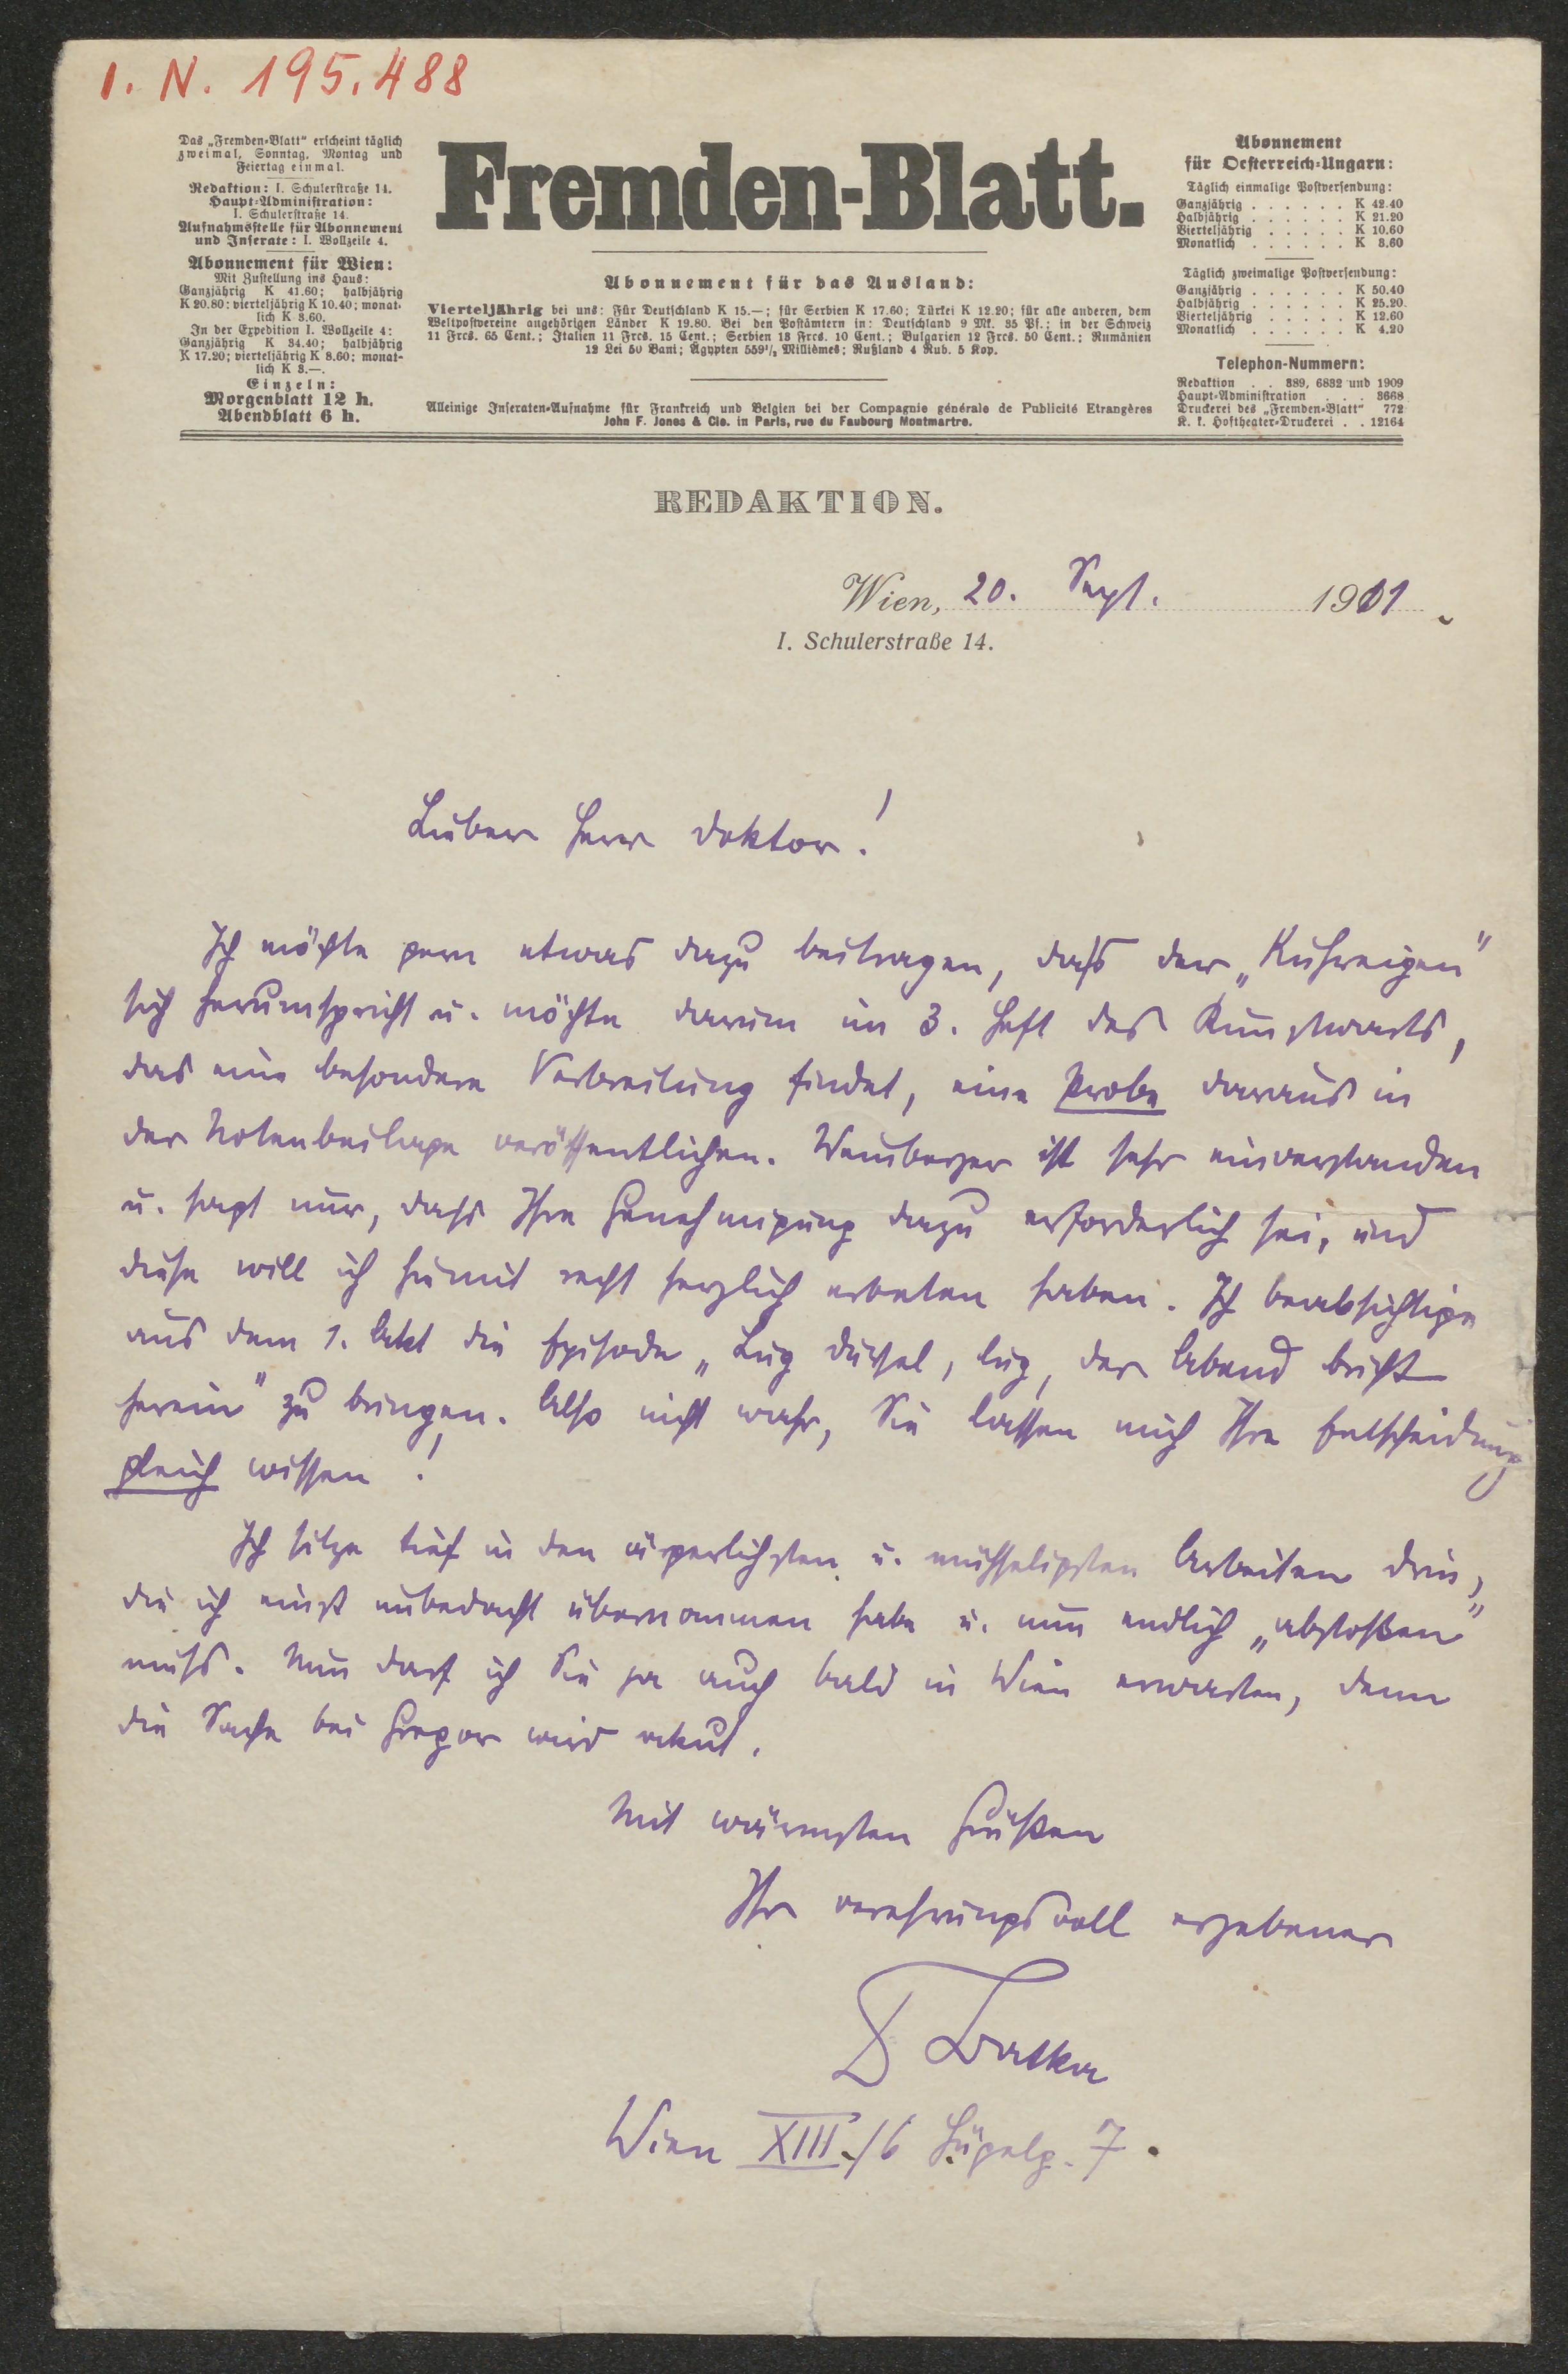 I. N. 195.488
Das „Fremden-Blatt“ erscheint täglich
zweimal, Sonntag, Montag und
Feiertag einmal.
Redaktion: I. Schulerstraße 14.
Haupt-Administration:
I. Schulerstraße 14.
Aufnahmsstelle für Abonnement
und Inserate: I. Wollzeile 4.
Abonnement für Wien:
Mit Zustellung ins Haus:
Ganzjährig K 41.60; halbjährig
K 20.80; vierteljährig K 10.40; monat-
lich K 3.60.
In der Expedition I. Wollzeile 4:
Ganzjährig K 34.40; halbjährig
K 17.20; vierteljährig K 8.60; monat-
lich K 3.—.
Einzeln:
Morgenblatt 12 h.
Abendblatt 6 h.
Fremden-Blatt.
Abonnement für das Ausland:
Vierteljährig bei uns: Für Deutschland K 15.—; für Serbien K 17.60; Türkei K 12.20; für alle anderen, dem
Weltpostvereine angehörigen Länder K 19.80. Bei den Postämtern in: Deutschland 9 Mk. 35 Pf.; in der Schweiz
11 Frcs. 65 Cent.; Italien 11 Frcs. 15 Cent.; Serbien 18 Frcs. 10 Cent.; Bulgarien 12 Frcs. 50 Cent.; Rumänien
12 Lei 50 Bani; Ägypten 559½ Millièmes; Rußland 4 Rub. 5 Kop.
Alleinige Inseraten-Aufnahme für Frankreich und Belgien bei der Compagnie générale de Publicité Etrangères
John F. Jones & Cie. in Paris, rue du Faubourg Montmartre.
Abonnement
für Oesterreich-Ungarn:
Täglich einmalige Postversendung:
Ganzjährig . . . . . . K 42.40
Halbjährig . . . . . . K 21.20
Vierteljährig . . . . . K 10.60
Monatlich . . . . . . K 3.60
Täglich zweimalige Postversendung:
Ganzjährig . . . . . . K 50.40
Halbjährig . . . . . . K 25.20
Vierteljährig . . . . . K 12.60
Monatlich . . . . . . K 4.20
Telephon-Nummern:
Redaktion . . 389, 6832 und 1909
Haupt-Administration . . . 3668
Druckerei des „Fremden-Blatt“ 772
K. k. Hoftheater-Druckerei . . 12164
REDAKTION.
Wien, 20. Sept. 1911.
I. Schulerstraße 14.
Lieber Herr Doktor!
Ich möchte gern etwas dazu beitragen, dass der „Kuhreigen“
sich herumspricht u. möchte darum im 3. Heft des Kunstwarts,
das eine besondere Verbreitung findet, eine Probe daraus in
der Notenbeilage veröffentlichen. Weinberger ist sehr einverstanden
u. sagt nur, dass Ihre Genehmigung dazu erforderlich sei, und
diese will ich hiemit recht herzlich erbeten haben. Ich beabsichtige
aus dem 1. Akt die Episode „Lug Dursel, lug, der Abend bricht
herein“ zu bringen. Also nicht wahr, Sie lassen mich Ihre Entscheidung
gleich wissen!
Ich sitze tief in den ärgerlichsten u. mühseligsten Arbeiten drin,
die ich einst unbedacht übernommen habe u. nun endlich „abstoßen“
muss. Nun darf ich Sie ja auch bald in Wien erwarten, denn
die Sache bei Gregor wird akut.
Mit wärmsten Grüßen
Ihr verehrungsvoll ergebener
D Batka
Wien XIII./6 Hügelg. 7.